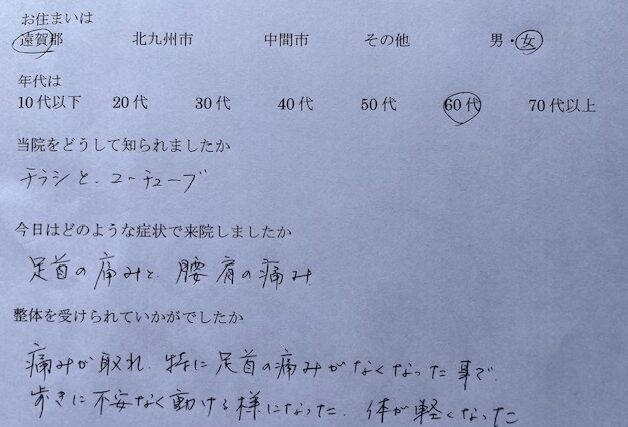 お住まいは
遠賀郡 北九州市 中間市 その他 男・女
年代は
10代以下 20代 30代 40代 50代 60代 70代以上
当院をどうして知られましたか
チラシと、ユーチューブ
今日はどのような症状で来院しましたか
足首の痛みと、腰肩の痛み
整体を受けられていかがでしたか
痛みが取れ、特に足首の痛みがなくなった事で、
歩きに不安なく動ける様になった、体が軽くなった